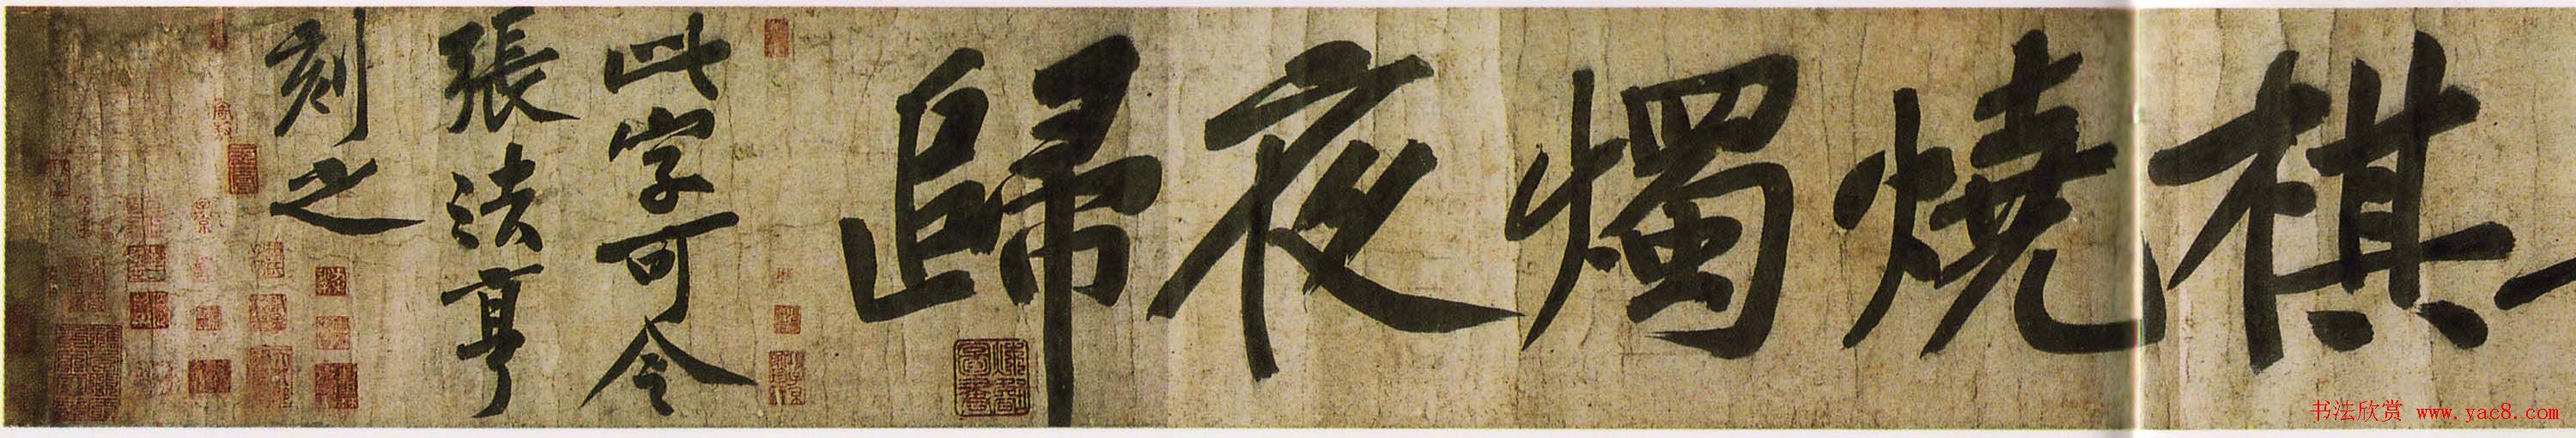 棋
燒
燭
夜
歸
此字可令
張法亨
刻之
书法欣赏 www.yac8.com